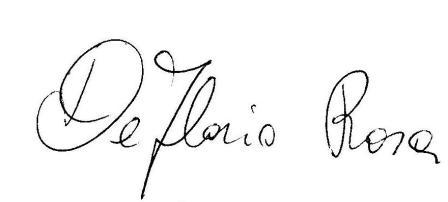 De Florio Rosa